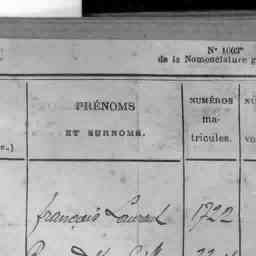 N° 1003
de la Nomenclature g
PRÉNOMS
ET SURNOMS.
NUMÉROS
ma-
tricules.
NU
vo
e.)
françois Laurent 1722